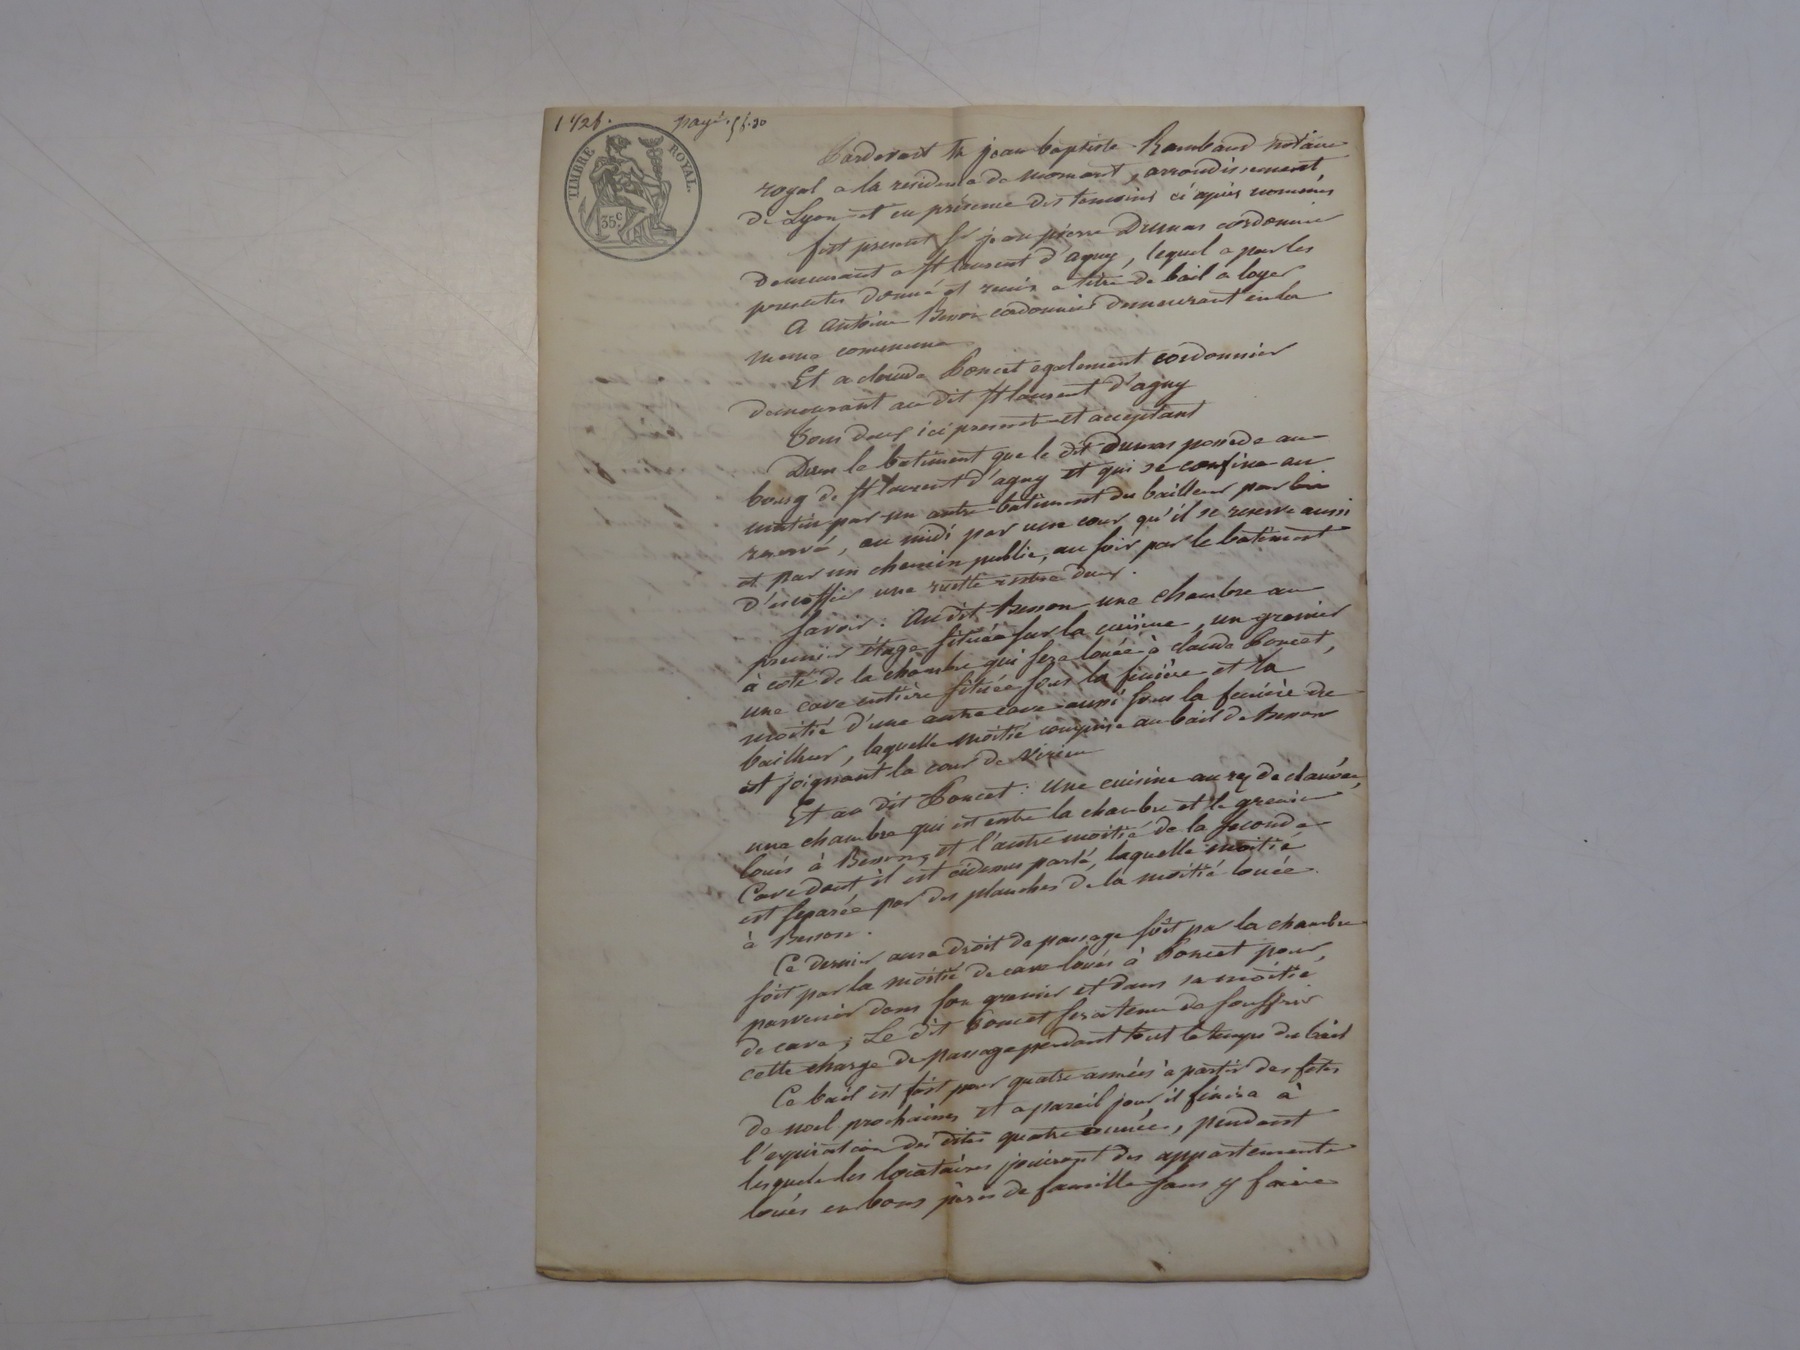 payé. 5f.30
TIMBRE ROYAL.
35c.
Pardevant Me jean baptiste Rambaud notaire
royal a la residence de mornant, arrondissement
de Lyon et en présence des temoins ci après nommés
fut present Sr jean pierre Dumas cordonnier
demeurant a St laurent d'agny, lequel a par les
presentes donné et remis a titre de bail a loyer
A antoine Besson cordonnier demeurant en la
meme commune
Et a claude Poncet egalement cordonnier
demeurant au dit St laurent d'agny
Tous deux ici present et acceptant
Dans le batiment que le dit Dumas possede au
bourg de St laurent d'agny et qui se confine au
matin par un autre batiment du bailleur par lui
reservé, au midi par une cour qu'il se reserve aussi
et par un chemin public, au soir par le batiment
d'escoffier une ruelle entre deux.
Savoir: Au dit Besson une chambre au
premier étage située sur la cuisine, un grenier
à coté de la chambre qui sera louée à claude Poncet,
une cave entière située sous la finière et la
moitié d'une autre cave aussi sous la fenière du
bailleur, laquelle moitié comprise au bail de Besson
est joignant la cour de
Et au dit Poncet: une cuisine au rez de chaussée,
une chambre qui est entre la chambre et le grenier
loués à Besson, et l'autre moitié de la seconde
Cave dont il est cidessus parlé, laquelle moitié
est separée par des planches de la moitié louée
à Besson.
Ce dernier aura droit de passage soit par la chambre
soit par la moitié de cave loués à Poncet pour
parvenir dans son grenier et dans sa moitié
de cave; Le dit Poncet sera tenu de souffrir
cette charge de passage pendant tout le temps du bail
Ce bail est fait pour quatre années à partir des fetes
de noel prochaines et a pareil jour il finira à
l'expiration des dites quatre années, pendant
lesquels les locataires jouiront des appartements
loués en bons pères de famille sans y faire